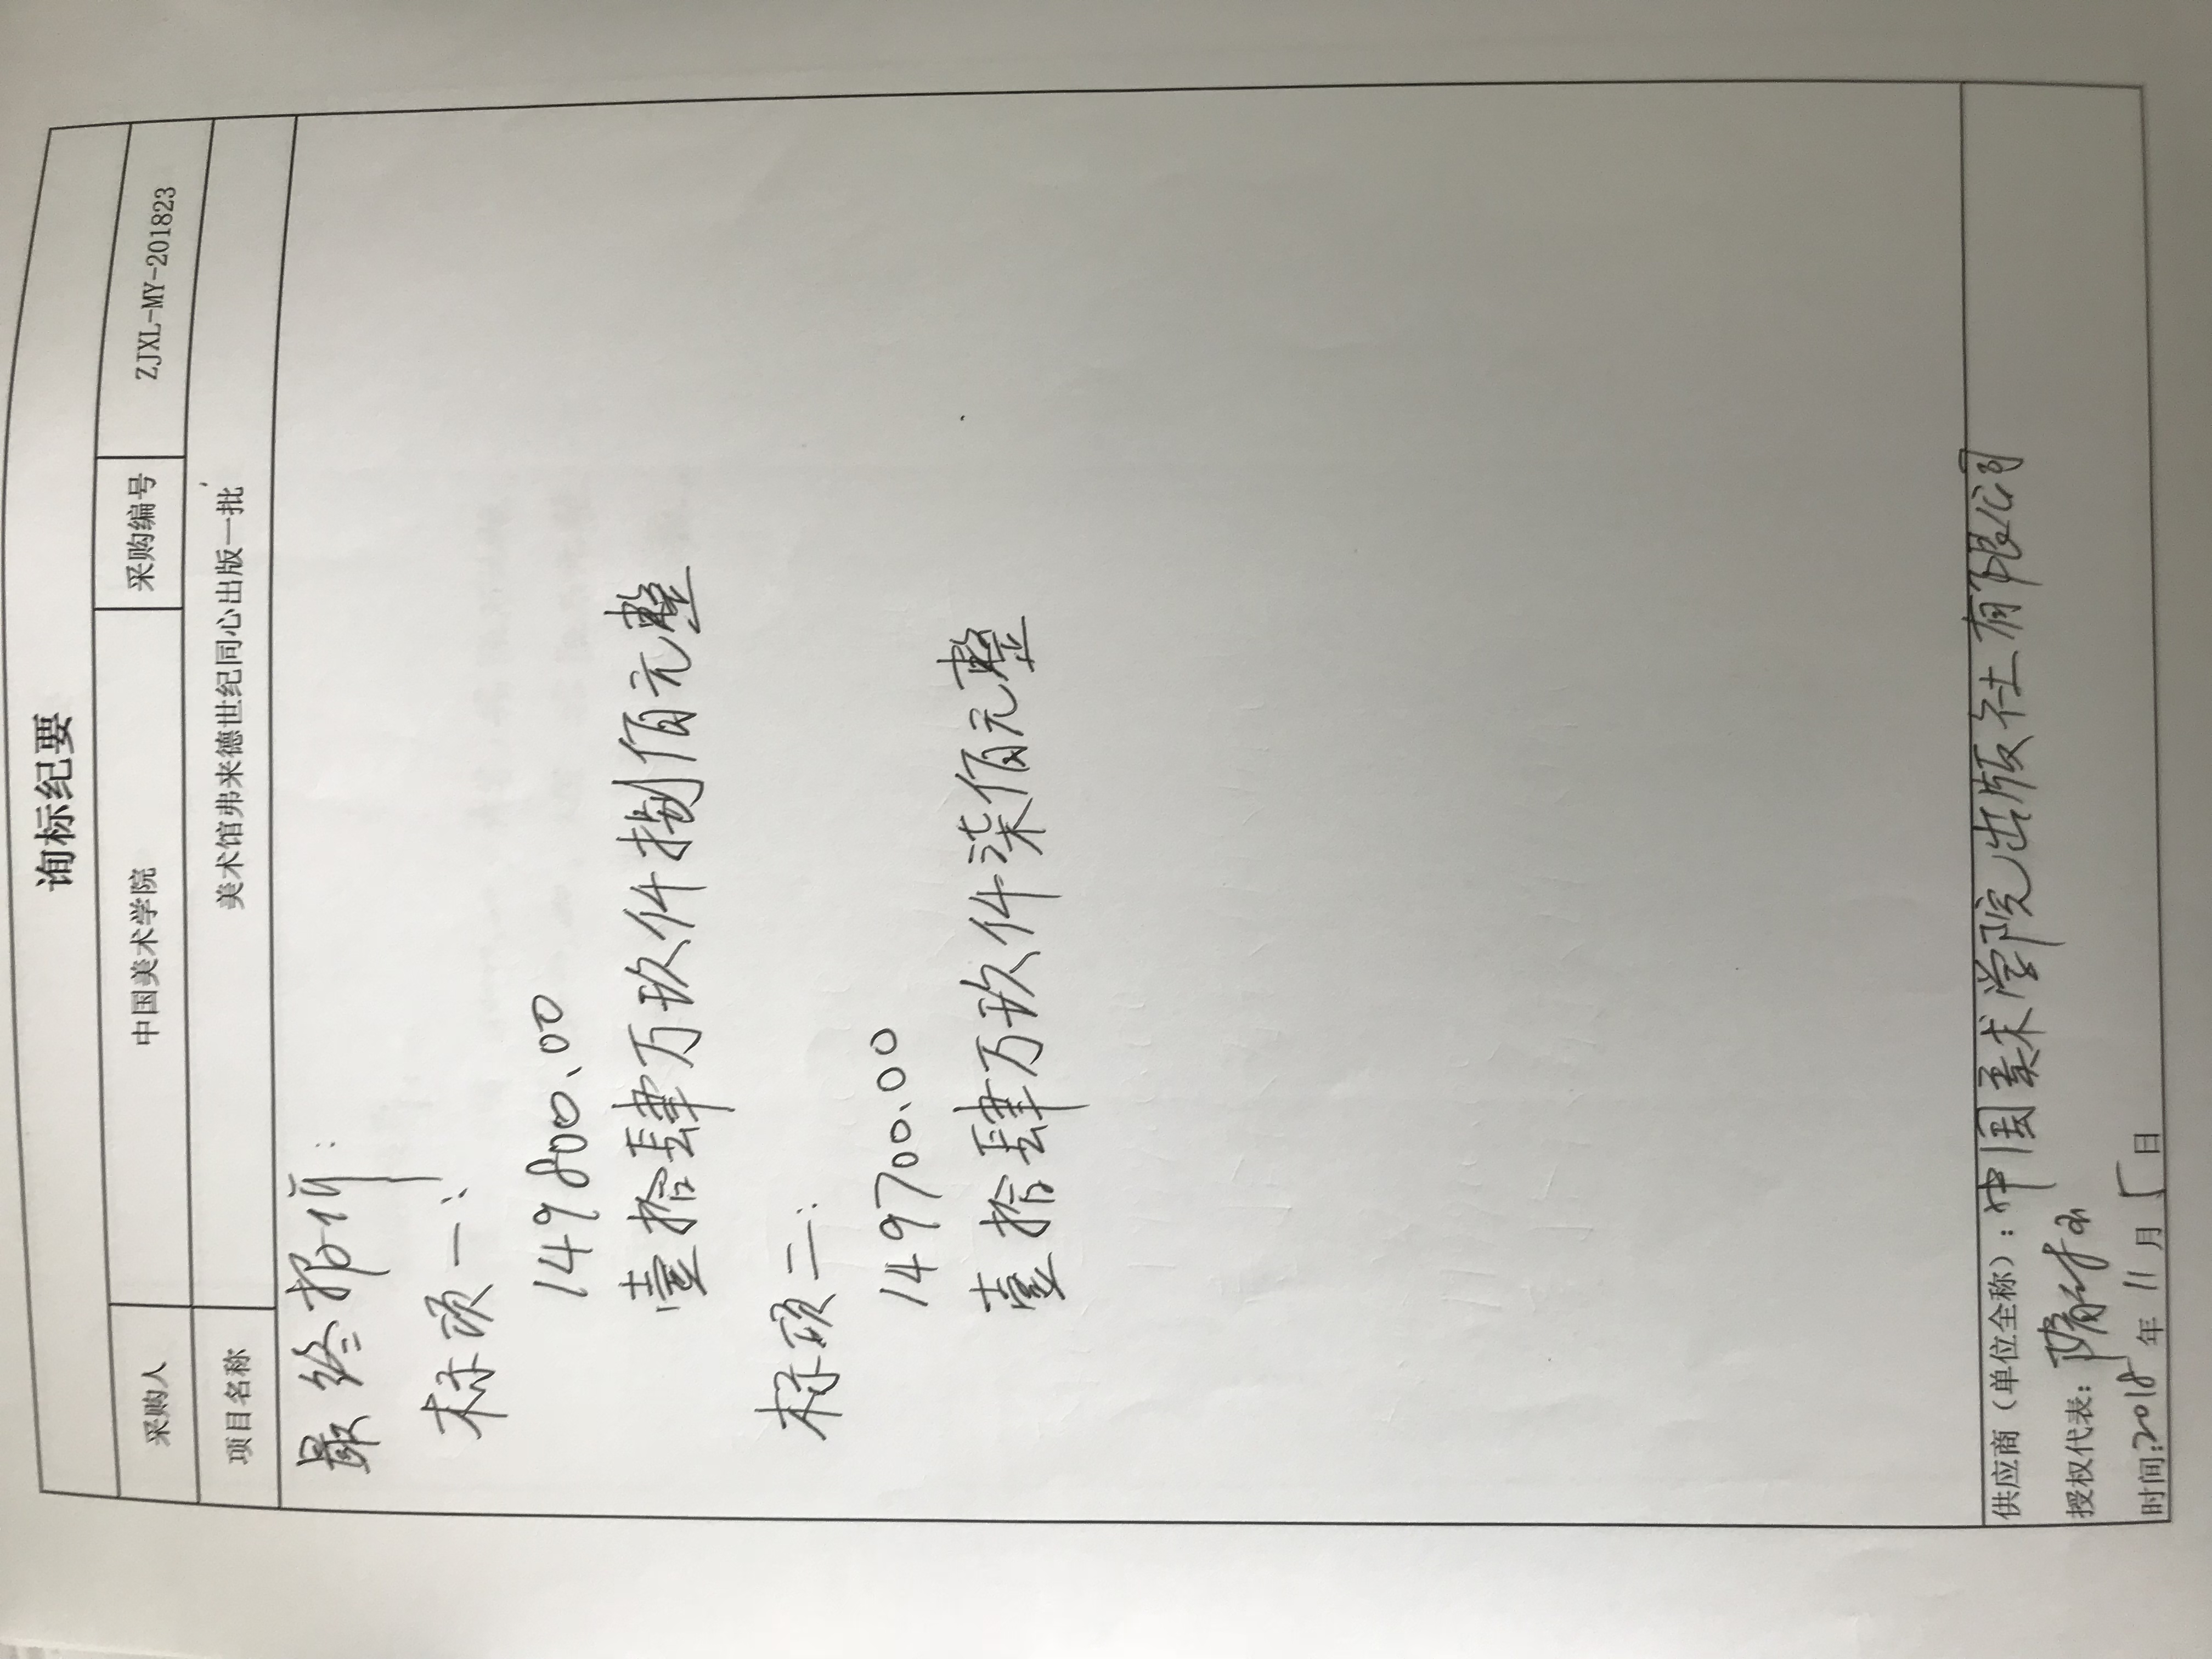 询标纪要
采购人 中国美术学院 采购编号 ZJXL-MY-201823
项目名称 美术馆弗来德世纪同心出版一批
最终报价:
标项一:
149800.00
壹拾肆万玖仟捌佰元整
标项二:
149700.00
壹拾肆万玖仟柒佰元整
供应商（单位全称）：中国美术学院出版社有限公司
授权代表:
时间:2018年11月5日